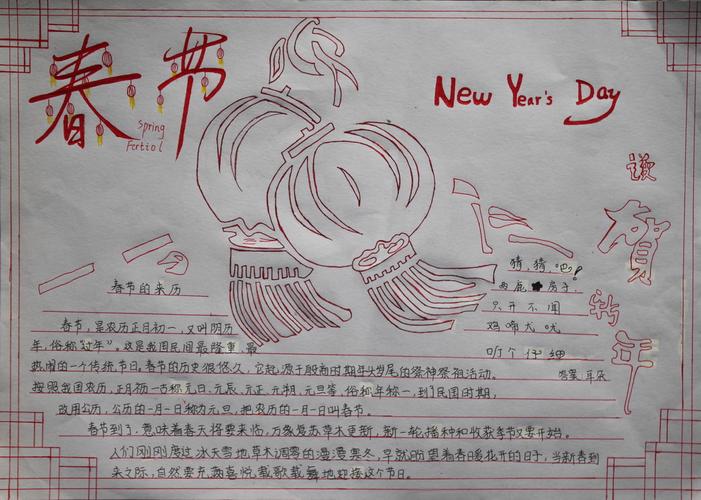 春节
Spring
Fertiol
New Year's Day
谨
贺
新
年
春节的来历
春节，是农历正月初一，又叫阴历
年，俗称"过年"。这是我国民间最隆重、最
热闹的一个传统节日。春节的历史很悠久，它起源于殷商时期年头岁尾的祭神祭祖活动。
按照我国农历，正月初一古称元日、元辰、元正、元朔、元旦等，俗称年初一，到了民国时期，
改用公历，公历的一月一日称为元旦，把农历的一月一日叫春节。
春节到了，意味着春天将要来临，万象复苏草木更新，新一轮播种和收获季节又要开始。
人们刚刚度过冰天雪地草木凋零的漫漫寒冬，早就盼望着春暖花开的日子，当新春到
来之际，自然要充满喜悦载歌载舞地迎接这个节日。
猜，猜，吧！
房子
只开不闻
鸡啼犬吠
听个仔细
答案：耳朵